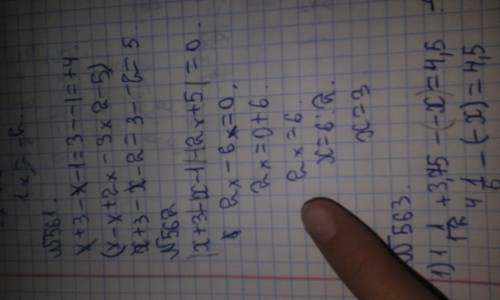 №561.
x+3-x-1=3-1=+4
(x-x+2x-3x2-5)
x+3-x-2=3-2=5.
№562
|x+3-x-1|+2x+5|=0.
2x-6x=0,
2x=0+6.
2x=6.
x=6:2.
x=3
№563.
1) 1 1/12+3,75-(-x)=4,5
4 1/5-(-x)=4,5